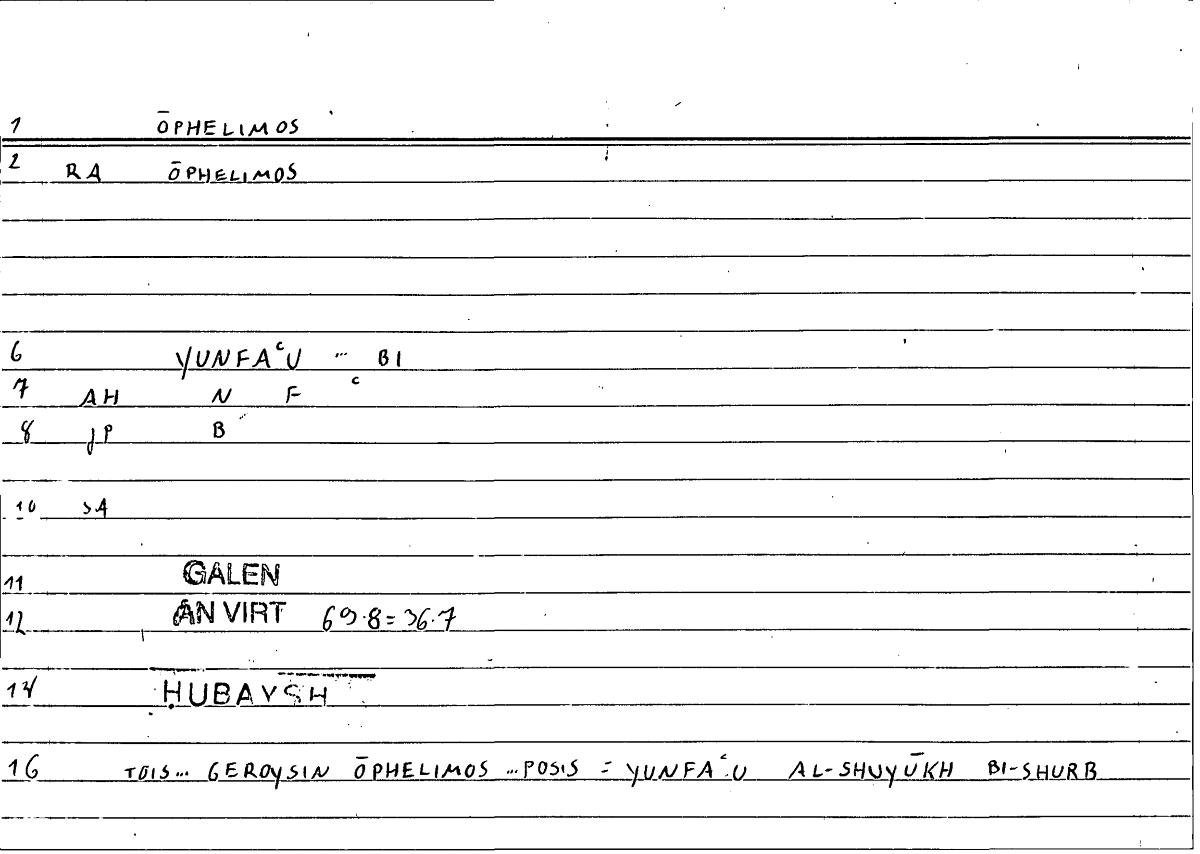 1 ŌPHELIMOS
2 RA ŌPHELIMOS
6 YUNFAᶜU ... BI
7 AH N F ᶜ
8 JP B
10 SA
11 GALEN
12 AN VIRT 69.8 = 36.7
14 ḤUBAYSH
16 TOIS... GEROYSIN ŌPHELIMOS ...POSIS = YUNFAᶜU AL-SHUYŪKH BI-SHURB